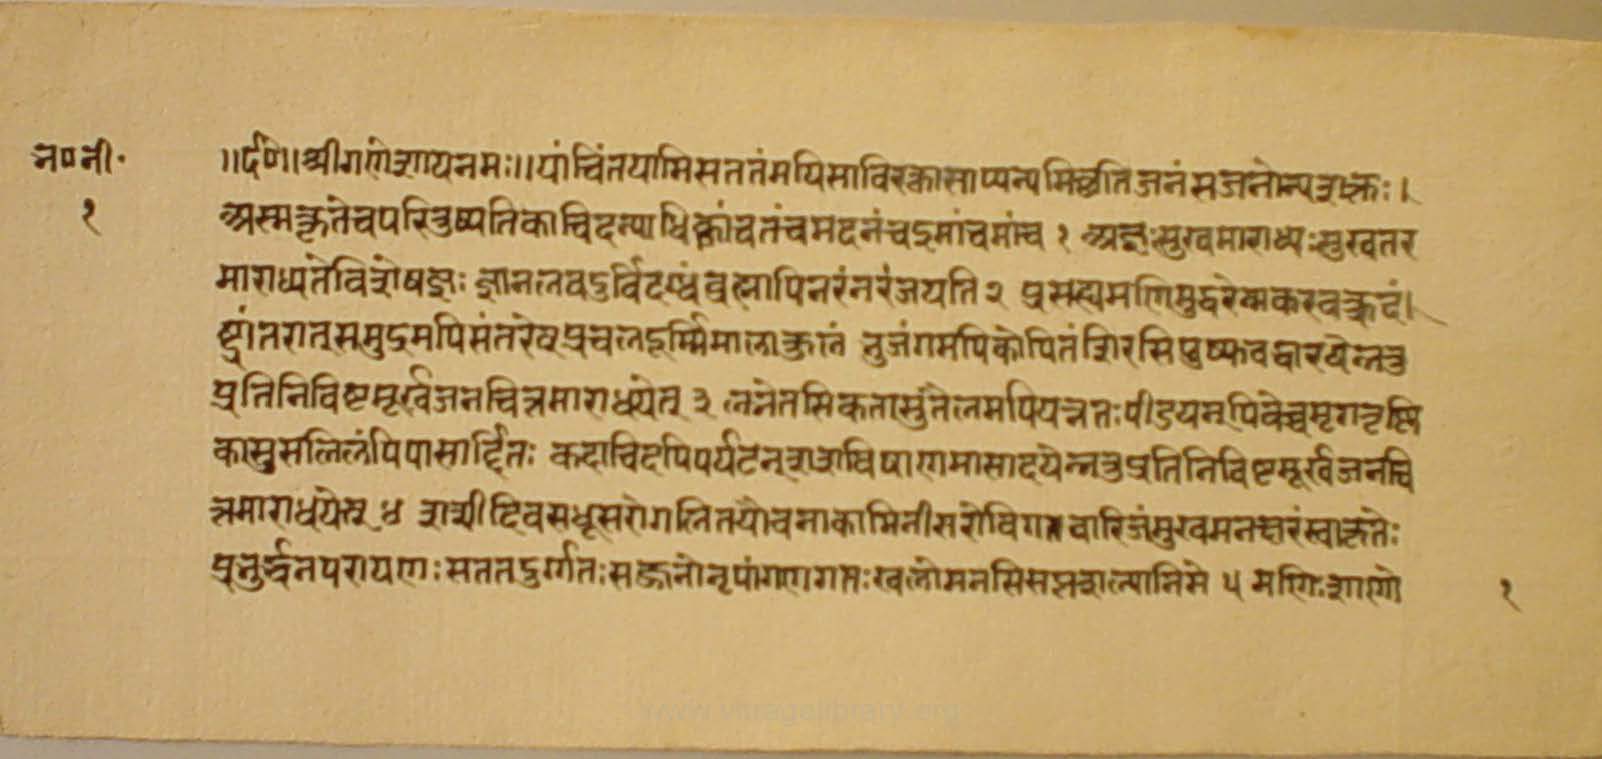 न॰ नी॰
१
॥र्दण॥श्रीगणेशायनमः॥यांचिंतयामिसततंमयिसाविरक्तासाप्यन्यमिच्छतिजनंसजनोन्यशक्तः।
अस्मत्कृतेचपरितुष्यतिकाचिदन्याधिक्तांचतंचमदनंचइमांचमांच १ अज्ञःसुखमाराध्यःसुखतर
माराध्यतेविशेषज्ञः ज्ञानलवदुर्विदग्धंब्रह्मापिनरंनरंजयति २ प्रसह्यमणिमुद्धरेन्मकरवक्त्रदं।
ष्ट्रांतरात्समुद्रमपिसंतरेत्प्रचलदूर्म्मिमालाकुलं भुजंगमपिकोपितंशिरसिपुष्पवद्धारयेन्नतु
प्रतिनिविष्टमूर्खजनचित्तमाराधयेत् ३ लभेतसिकतासुतैलमपियत्नतःपीडयन्पिबेच्चमृगतृष्णि
कासुसलिलंपिपासार्द्दितः कदाचिदपिपर्यटन्शशविषाणमासादयेन्नतुप्रतिनिविष्टमूर्खजनचि
त्तमाराधयेत् ४ शशीदिवसधूसरोगलितयौवनाकामिनीसरोविगतवारिजंमुखमनक्षरंस्वाकृतेः
प्रभुर्द्धनपरायणःसततदुर्गतःसज्जनोनृपांगणगतःखलोमनसिसप्तशल्यानिमे ५ मणिःशाणो
१
www.vitragelibrary.org